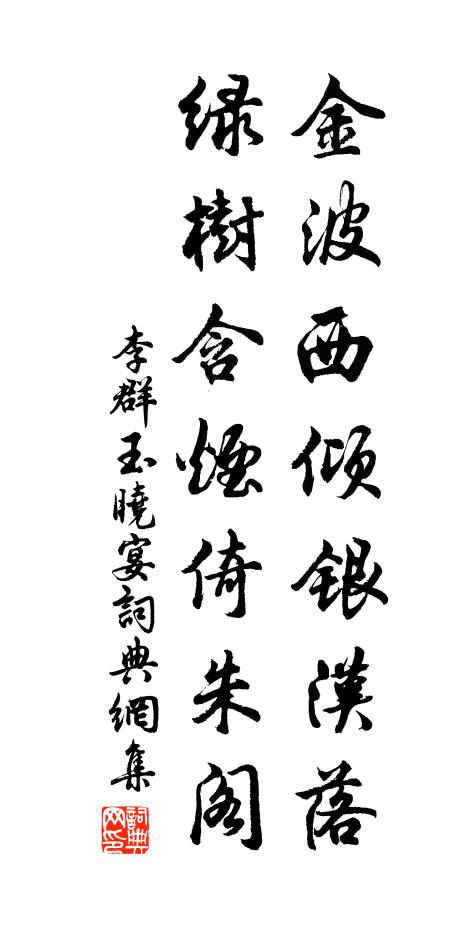 金波西倾银漢落
绿樹含煙倚朱阁
李群玉曉宴詞典網集
詞典网印